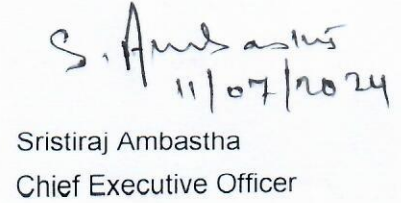 S. Ambastha
11/07/2024
Sristiraj Ambastha
Chief Executive Officer